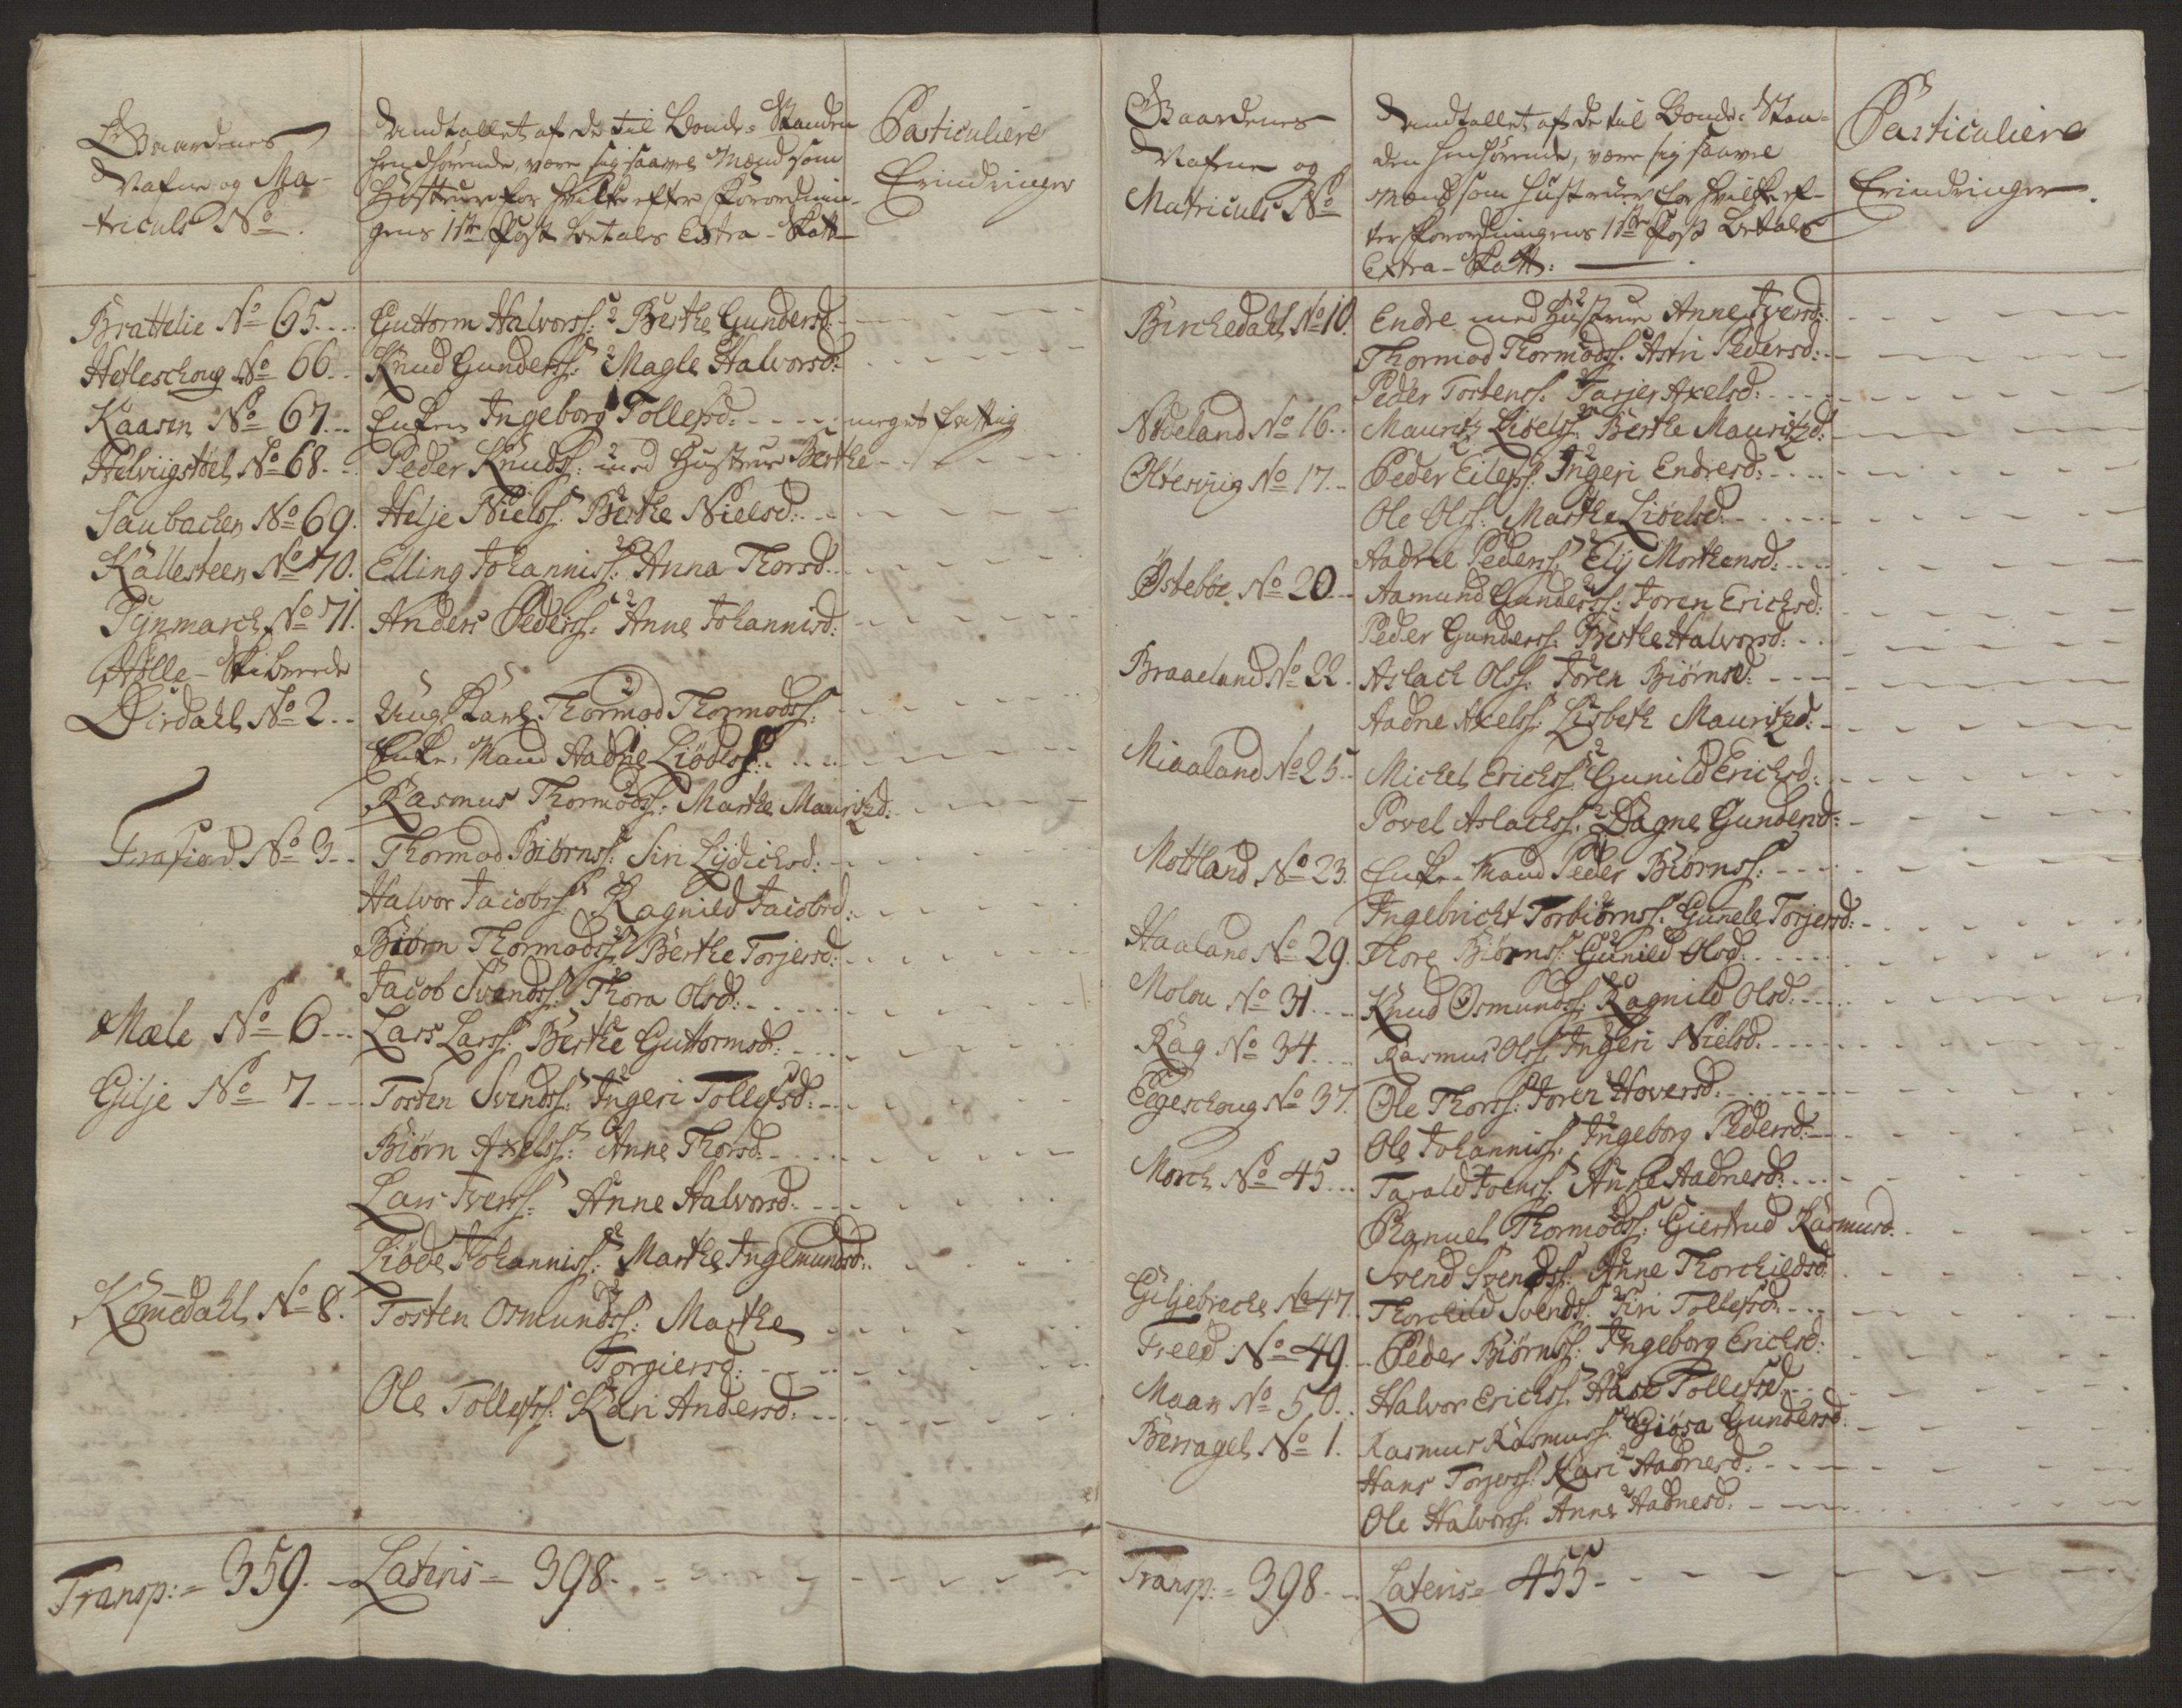 Gaardenes
Nafne og Ma-
triculs No.
Andtallet af de til Bonde-Standen
henhørende, være sig saavel Mænd som
Hustruer for hvilke efter Forordnin-
gens 1ste Post betales Extra-Skatt
Particuliere
Erindringer
Brattelie No 65. Guttorm Halvorss: 2 Berthe Gundersd:
Hetleschoug No 66. Knud Gunderss: 2 Magle Halvorsd:
Kaasen No 67. Enken Ingeborg Tollefsd: meget fattig
Helvigstøel No 68. Peder Knudss: 2 med Hustrue Berthe
Saubachen No 69. Helje Nielss: Berthe Nielsd:
Kallesteen No 70. Elling Johanniss: 2 Anna Thorsd:
Tynmarch No 71. Anders Pederss: 2 Anne Johannisd:
Helle-Skibrede
Dirdahl No 2. Ung Karl Thormod Thormodss: 2
Enke-Mand Aadne Liødelss:
Rasmus Thormodss: Marthe Mauritzd:
Frafiord No 3. Thormod Biørnss: Siri Lydichsd:
Halvor Jacobss: 2 Ragnild Jacobsd:
Biørn Thormodss: 2 Berthe Torjersd:
Jacob Svendss: 2 Thora Olsd:
Mæle No 6. Lars Larss: 2 Berthe Guttormsd:
Gilje No 7. Torsten Svendss: 2 Ingeri Tollefsd:
Biørn Axelss: 2 Anne Thorsd:
Lars Iverss: 2 Anne Halvorsd:
Liøde Johanniss: 2 Marthe Ingemundsd:
Kommedahl No 8. Tosten Osmundss: 2 Marthe
Torgiersd:
Ole Tollefss: 2 Kari Andersd:
Transp: = 359. Lateris = 398.
Gaardenes
Nafne og
Matriculs No
Andtallet af de til Bonde-Stan-
den henhørende, være sig saavel
Mænd som Hustruer for hvilke ef-
ter Forordningens 1ste Post betales
Extra-Skatt:
Particuliere
Erindringer.
Birchedahl No 10. Endre med Hustrue 2 Anne Iversd:
Thormod Thormodss: 2 Astri Pedersd:
Peder Tostenss: 2 Tarjer Axelsd:
Nødeland No 16. Mauritz Liøelss: 2 Berthe Mauritzd:
Oltesvig No 17. Peder Eilefss: 2 Ingeri Endresd:
Ole Olss: 2 Marthe Liøelsd:
Aadne Pederss: 2 Elij Morthensd:
Østebøe No 20. Aamund Gunderss: 2 Joren Erichsd:
Peder Gunderss: 2 Berthe Halvorsd:
Braaeland No 22. Aslach Olss: 2 Joren Biørnsd:
Aadne Axelss: 2 Lisbeth Mauritzd:
Miaaland No 25. Michel Erichss: 2 Gunild Erichsd:
Povel Aslachss: 2 Dagne Gundersd:
Motland No 23. Enke-Mand Peder Biørnss:
Ingebricht Torbiørnss: 2 Gunele Torjersd:
Haaland No 29. Thore Biørnss: 2 Gunild Olsd:
Molou No 31. Knud Osmundss: 2 Ragnild Olsd:
Rag No 34. Rasmus Olss: 2 Ingeri Nielsd:
Eegeschoug No 37. Ole Thorss: 2 Joren Hoversd:
Ole Johanniss: 2 Ingeborg Pedersd:
Morch No 45. Tarald Joenss: 2 Anne Aadnesd:
Thormodss: 2 Giertrud Rasmusd:
Svend Svendss: 2 Anne Thorchieldsd:
Giljebreche No 47. Thorchild Svends: 2 Siri Tollefsd:
Freed No 49. Peder Biørnss: 2 Ingeborg Erichsd:
Maan No 50. Halvor Erichss: 2 Aase Tollefsd:
Berragel No 1. Rasmus Rasmuss: 2 Giøsa Gundersd:
Hans Torjerss: 2 Kari Aadnesd:
Ole Halvorss: 2 Anne Aadnesd:
Transp: = 398. Lateris = 455.